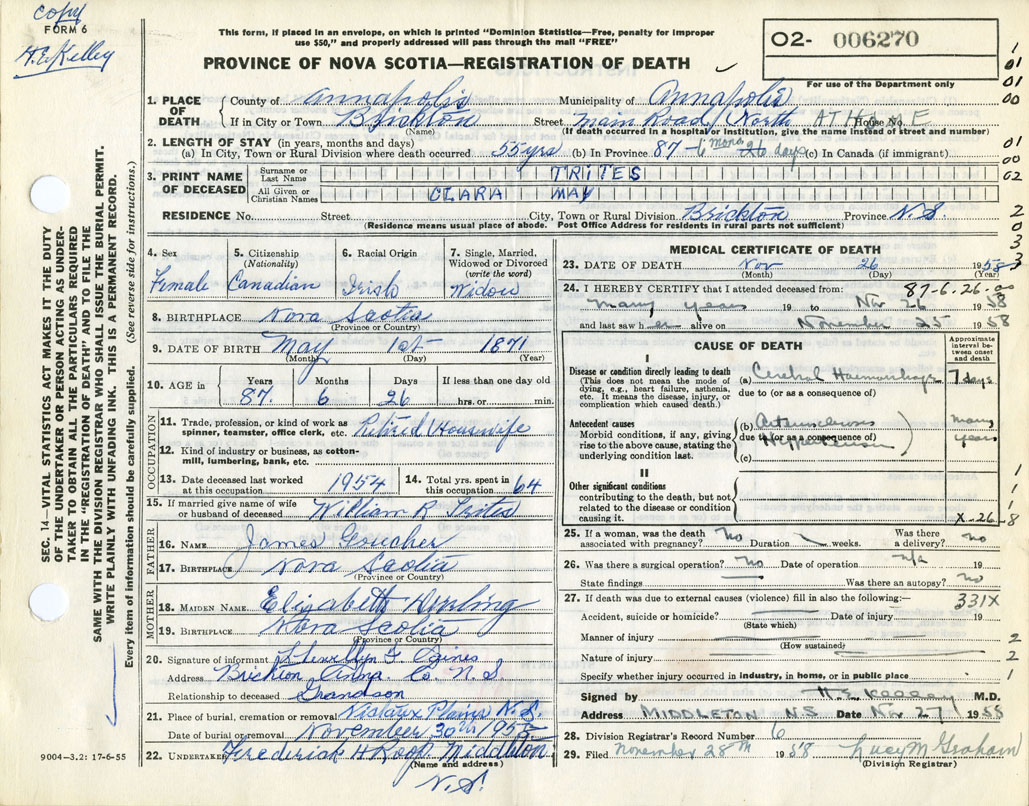 copy
FORM 6
H.E. Kelley
This form, if placed in an envelope, on which is printed "Dominion Statistics—Free, penalty for improper
use $50," and properly addressed will pass through the mail "FREE"
PROVINCE OF NOVA SCOTIA—REGISTRATION OF DEATH
O2- 006270
For use of the Department only
1. PLACE OF DEATH { County of Annapolis Municipality of Annapolis
If in City or Town Brickton Street Main Road, North AT HOME House No.
(Name) (If death occurred in a hospital or institution, give the name instead of street and number)
2. LENGTH OF STAY (in years, months and days)
(a) In City, Town or Rural Division where death occurred 55 yrs (b) In Province 87 - 6 mons 26 days (c) In Canada (if immigrant)
3. PRINT NAME OF DECEASED { Surname or Last Name TRITES
All Given or Christian Names CLARA MAY
RESIDENCE No. Street City, Town or Rural Division Brickton Province N.S.
(Residence means usual place of abode. Post Office Address for residents in rural parts not sufficient)
4. Sex Female
5. Citizenship (Nationality) Canadian
6. Racial Origin Irish
7. Single, Married, Widowed or Divorced (write the word) Widow
8. BIRTHPLACE Nova Scotia
(Province or Country)
9. DATE OF BIRTH May 1st 1871
(Month) (Day) (Year)
10. AGE in Years 87 Months 6 Days 26 If less than one day old hrs. or min.
OCCUPATION
11. Trade, profession, or kind of work as spinner, teamster, office clerk, etc. Retired Housewife
12. Kind of industry or business, as cotton-mill, lumbering, bank, etc.
13. Date deceased last worked at this occupation 1954 14. Total yrs. spent in this occupation 64
15. If married give name of wife or husband of deceased William R Trites
FATHER
16. NAME James Goucher
17. BIRTHPLACE Nova Scotia
(Province or Country)
MOTHER
18. MAIDEN NAME Elizabeth
19. BIRTHPLACE Nova Scotia
(Province or Country)
20. Signature of informant Llewellyn F.
Address Brickton Anna Co. N.S.
Relationship to deceased Grandson
21. Place of burial, cremation or removal Nictaux Plains N.S.
Date of burial or removal November 30th 1958
22. UNDERTAKER Frederick H Roop Middleton
(Name and address)
N.S.
MEDICAL CERTIFICATE OF DEATH
23. DATE OF DEATH Nov 26 1958
(Month) (Day) (Year)
87-6-26-00
24. I HEREBY CERTIFY that I attended deceased from:
many years 19 to Nov 26 1958
and last saw her alive on November 25 1958
CAUSE OF DEATH
Approximate interval between onset and death
I
Disease or condition directly leading to death
(This does not mean the mode of dying, e.g., heart failure, asthenia, etc. It means the disease, injury, or complication which caused death.)
(a) Cerebral Haemorrhage 7 days
due to (or as a consequence of)
Antecedent causes
Morbid conditions, if any, giving rise to the above cause, stating the underlying condition last.
(b) Arteriosclerosis many years
due to (or as a consequence of)
Hypertension
(c)
II
Other significant conditions
contributing to the death, but not related to the disease or condition causing it.
X-26-8
25. If a woman, was the death associated with pregnancy? no Duration weeks. Was there a delivery? no
26. Was there a surgical operation? no Date of operation n/a 19
State findings Was there an autopsy? no
27. If death was due to external causes (violence) fill in also the following:— 331X
Accident, suicide or homicide? Date of injury 19
(State which)
Manner of injury
(How sustained)
Nature of injury
Specify whether injury occurred in industry, in home, or in public place
Signed by H.E. Kelley M.D.
Address MIDDLETON NS Date Nov 27 1958
28. Division Registrar's Record Number 6
29. Filed November 28th 1958 Lucy M Graham
(Division Registrar)
SEC. 14—VITAL STATISTICS ACT MAKES IT THE DUTY
OF THE UNDERTAKER OR PERSON ACTING AS UNDER-
TAKER TO OBTAIN ALL THE PARTICULARS REQUIRED
IN THE "REGISTRATION OF DEATH" AND TO FILE THE
SAME WITH THE DIVISION REGISTRAR WHO SHALL ISSUE THE BURIAL PERMIT.
WRITE PLAINLY WITH UNFADING INK. THIS IS A PERMANENT RECORD.
Every item of information should be carefully supplied. (See reverse side for instructions.)
9004—3.2: 17-6-55
1
01
01
00
01
00
02
2
0
3
3
1
1
1
2
2
1